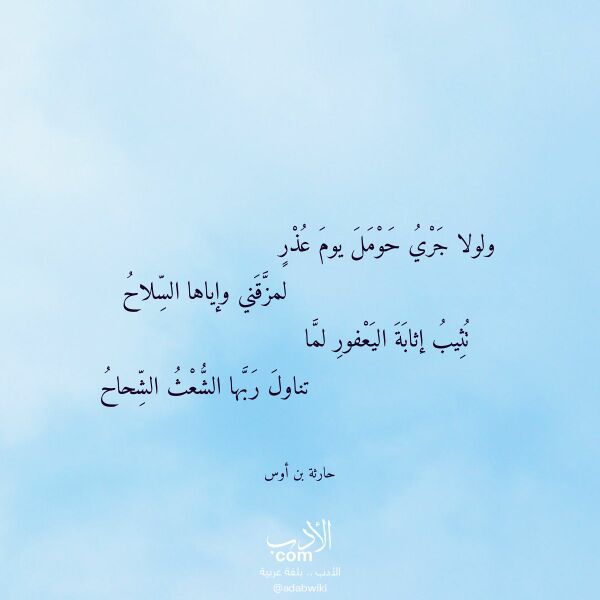 ولولا جَرْيُ حَوْمَلَ يومَ عُذْرٍ
لمزَّقَني وإياها السِّلاحُ
تُثِيبُ إثابَةَ اليَعْفورِ لمَّا
تناولَ رَبَّها الشُّعْثُ الشِّحاحُ
حارثة بن أوس
الأدب
.com
الأدب .. بلغة عربية
@adabwiki